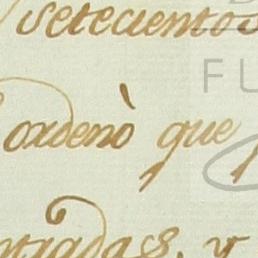 setecientos
ordenò que
entradas, y